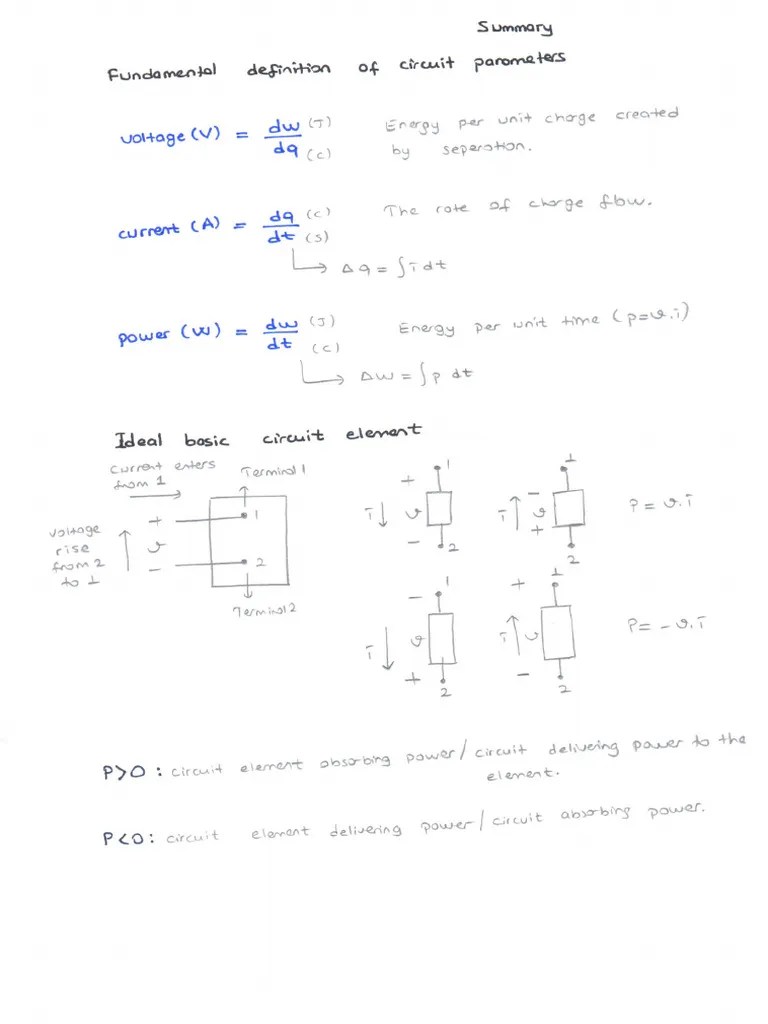 Summary
Fundamental definition of circuit parameters
voltage (V) = dw (J) / dq (C) Energy per unit charge created
by seperation.
current (A) = dq (C) / dt (s) The rate of charge flow.
Δq = ∫i dt
power (W) = dw (J) / dt (C) Energy per unit time (p=v.i)
Δw = ∫p dt
Ideal basic circuit element
current enters
from 1
Terminal 1
voltage
rise
from 2
to 1
+ 1
v
- 2
Terminal 2
1
+
i v
-
2
1
-
i v
+
2
P = v.i
1
-
i v
+
2
1
+
i v
-
2
P = - v.i
P>0 : circuit element absorbing power/circuit delivering power to the
element.
P<0 : circuit element delivering power/circuit absorbing power.